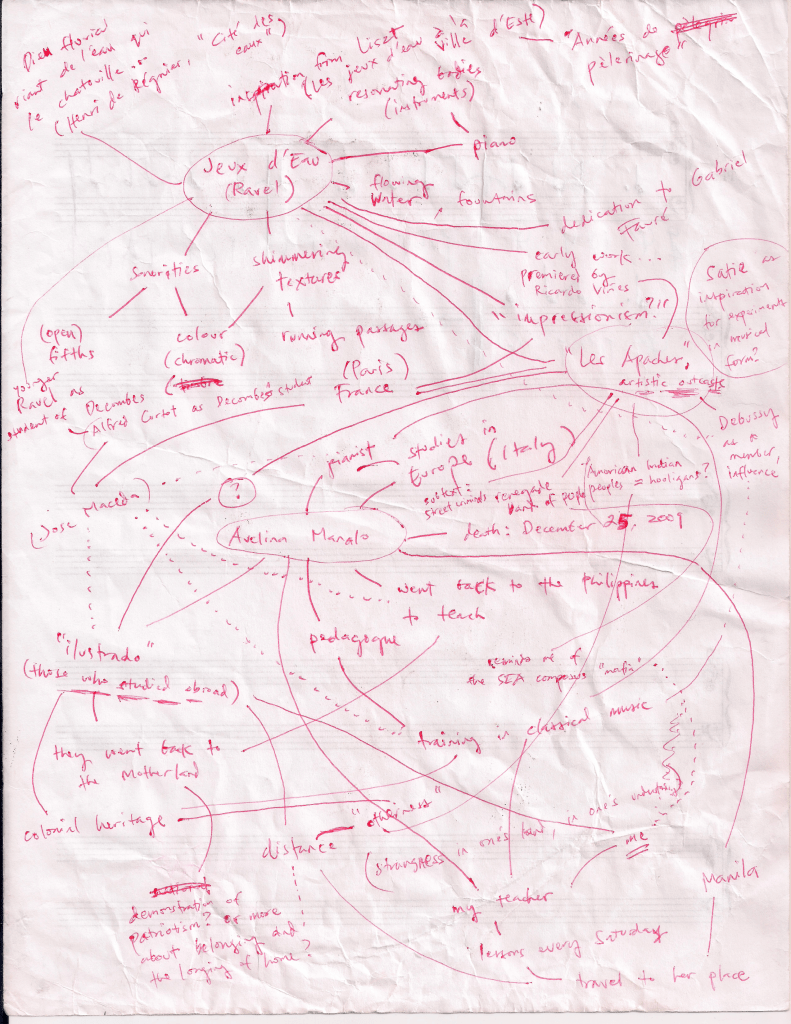 Dieu fluvial
riant de l'eau qui
le chatouille...
(Henri de Régnier, "Cité des
eaux")
inspiration from Liszt
(Les jeux d'eau à la
Ville d'Este)
"Années de
pèlerinage"
resonating bodies
(instruments)
piano
Jeux d'Eau
(Ravel)
flowing
water
fountains
dedication to Gabriel
Fauré
early work...
premiered by
Ricardo Viñes
"impressionism?"
Satie as
inspiration
for experiments
in musical
form?
Sonorities
shimmering
textures
(open)
fifths
colour
(chromatic)
running passages
(Paris)
France
"Les Apaches"
artistic outcasts
younger
Ravel as
student of Decombes
Alfred Cortot as Decombes' student
Debussy
as a
member,
influence
pianist
studies in
Europe (Italy)
(Jose Maceda)
?
street criminals renegade
band of people
(American Indian
peoples = hooligans?
Avelina Manalo
death: December 25, 2009
went back to the Philippines
to teach
pedagogue
"ilustrado"
(those who studied abroad)
reminds me of
the SEA composers "mafia"
training in classical music
they went back to
the Motherland
colonial heritage
distance
"otherness"
(strangeness in one's land, in one's
me
Manila
my teacher
demonstration of
Patriotism? or more
about belonging and
the longing of home?
lessons every Saturday
travel to her place